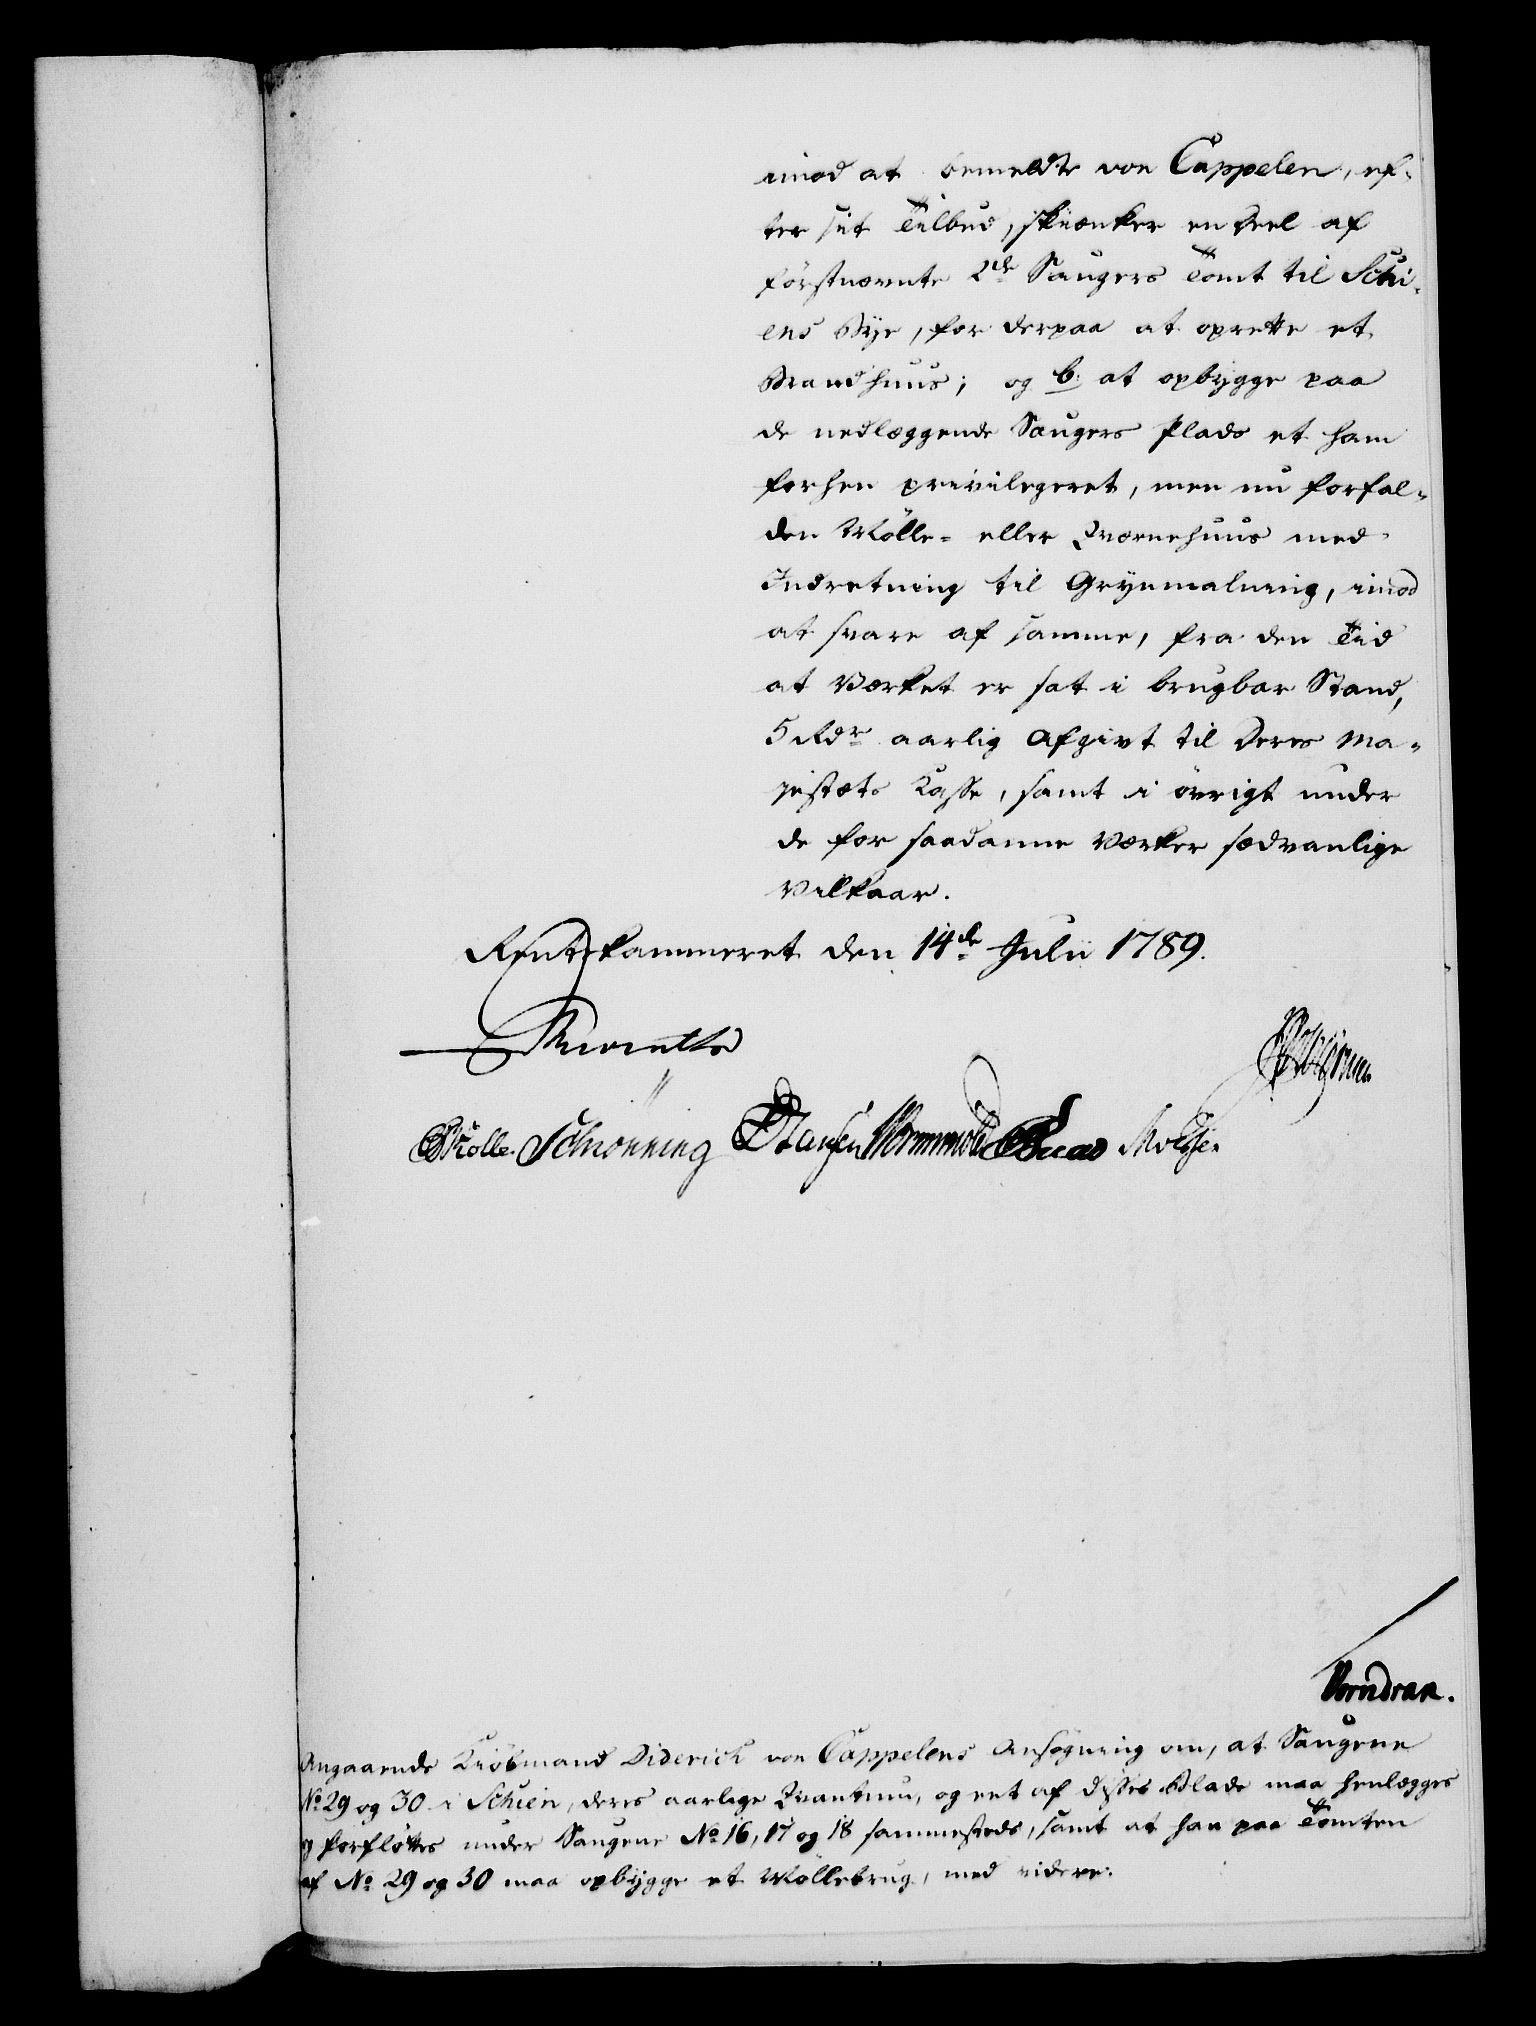 imod at bemeldte von Cappelen, ef-
ter sit Tilbud, skienker en Deel af
förstnævnte 2de Saugers Tomt til Schi-
ens Bye, for derpaa at oprette et
Brandhuus; og b. at opbygge paa
de nedlæggende Saugers Plads et ham
forhen privilegeret, men nu forfal-
den Mölle- eller Qværnehuus med
Indretning til Grynmalning, imod
at svare af samme, fra den Tid
at Værket er sat i brugbar Stand,
5 Rdr aarlig Afgivt til Deres Ma-
jestæts Kasse, samt i övrigt under
de for saadanne Værker sædvanlige
Vilkaar.
Rentekammeret den 14de Julii 1789.
Schiönning Hansen Wormskiold
Vorndran.
Angaaende Kiöbmand Diderich von Cappelens Ansögning om, at Saugene
No 29 og 30 i Schien, deres aarlige Qvantum, og eet af disses Blade maa henlægges
og forflöttes under Saugene No 16, 17 og 18 sammesteds, samt at han paa Tomten
af No 29 og 30 maa opbygge et Möllebrug, med videre.